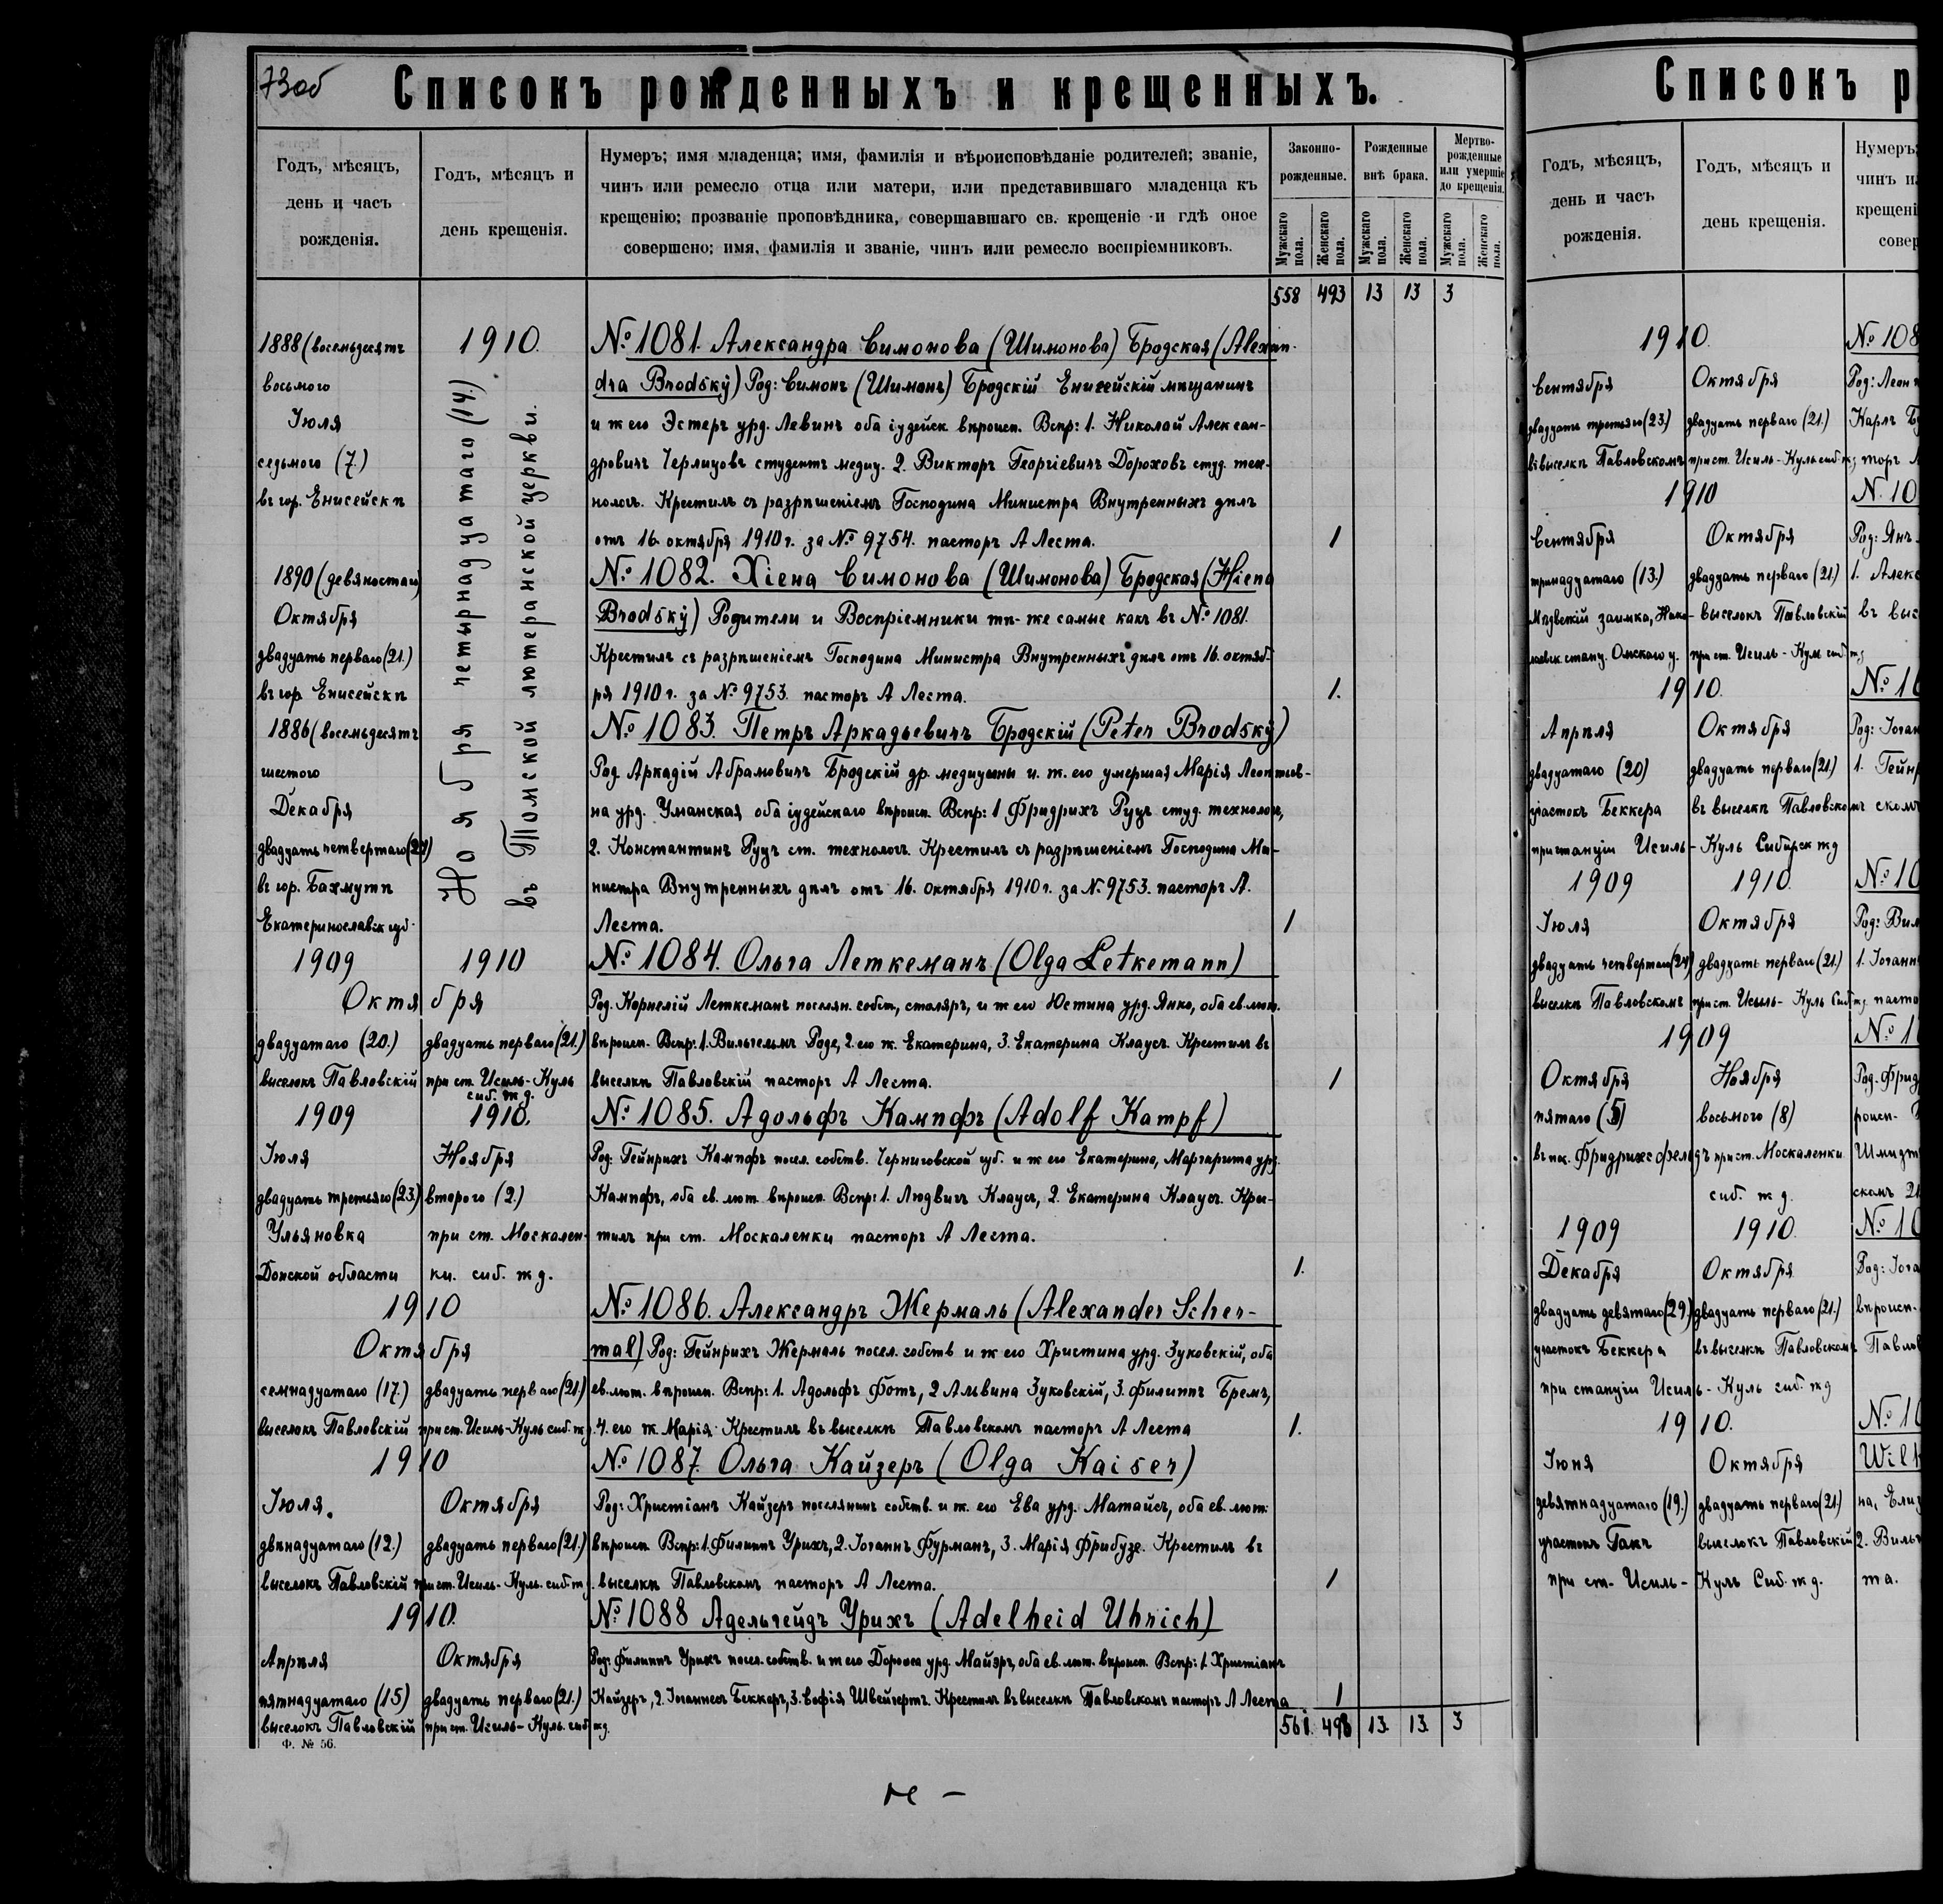 73об
Списокъ рожденныхъ и крещенныхъ.
Годъ, мѣсяцъ, день и часъ рожденія.
Годъ, мѣсяцъ и день крещенія.
Нумеръ; имя младенца; имя, фамилія и вѣроисповѣданіе родителей; званіе,
чинъ или ремесло отца или матери, или представившаго младенца къ
крещенію; прозваніе проповѣдника, совершавшаго св. крещеніе и гдѣ оное
совершено; имя, фамилія и званіе, чинъ или ремесло воспріемниковъ.
Законно-рожденные.
Рожденные внѣ брака.
Мертво-рожденные или умершіе до крещенія.
Мужскаго пола.
Женскаго пола.
Мужскаго пола.
Женскаго пола.
Мужскаго пола.
Женскаго пола.
558 493 13 13 3
1888 (восемьдесятъ
восьмого
Іюля
седьмого (7.)
въ гор. Енисейскѣ
1910.
Ноября четырнадцатаго (14.)
въ Томской лютеранской церкви.
№ 1081. Александра Симонова (Шимонова) Бродская (Alexan-
dra Brodský) Род: Симонъ (Шимонъ) Бродскій Енисейскій мѣщанинъ
и ж его Эстеръ урд. Левинъ оба іудейск вѣроисп. Вспр: 1. Николай Алексан-
дровичъ Черлицовъ студентъ медиц. 2. Викторъ Георгіевичъ Дороховъ студ. тех-
нологъ. Крестилъ съ разрѣшеніемъ Господина Министра Внутренныхъ дѣлъ
отъ 16. октября 1910 г. за № 9754. пасторъ А Леста.
1
1890 (девяностаго)
Октября
двадцать перваго (21.)
въ гор. Енисейскѣ
№ 1082. Хіена Симонова (Шимонова) Бродская (Hiena
Brodský) Родители и Воспріемники тѣ-же самые какъ въ № 1081.
Крестилъ съ разрѣшеніемъ Господина Министра Внутренныхъ дѣлъ отъ 16. октяб-
ря 1910 г. за № 9753. пасторъ А Леста.
1.
1886 (восемьдесятъ
шестого
Декабря
двадцать четвертаго (24)
въ гор. Бахмутѣ
Екатеринославск губ.
№ 1083. Петръ Аркадьевичъ Бродскій (Peter Brodský)
Род Аркадій Абрамовичъ Бродскій др. медицины и. ж. его умершая Марія Леонтьев-
на урд. Уманская оба іудейскаго вѣроисп. Вспр: 1 Фридрихъ Руцъ студ. технологъ,
2. Константинъ Руцъ ст. технологъ. Крестилъ съ разрѣшеніемъ Господина Ми-
нистра Внутренныхъ дѣлъ отъ 16. октября 1910 г. за № 9753. пасторъ А.
Леста.
1
1909 1910
Октября
двадцатаго (20.) двадцать перваго (21.)
выселокъ Павловскій при ст. Исиль-Куль
сиб. ж д.
№ 1084. Ольга Леткеманъ (Olga Letkemann)
Род. Корнелій Леткеманъ поселян. собств, столяръ, и ж его Юстина урд. Янко, оба ев. лют.
вѣроисп. Вспр: 1. Вильгельмъ Роде, 2. его ж. Екатерина, 3. Екатерина Клаусъ. Крестилъ въ
выселкѣ Павловскій пасторъ А Леста.
1
1909 1910.
Іюля Ноября
двадцать третьяго (23.) второго (2.)
Ульяновка при ст. Москален-
Донской области ки. сиб. ж д.
№ 1085. Адольфъ Кампфъ (Adolf Kampf)
Род: Гейнрихъ Кампфъ посел. собств. Черниговской губ. и ж его Екатерина, Маргарита урд.
Кампфъ, оба ев. лют. вѣроисп. Вспр: 1. Людвигъ Клаусъ, 2. Екатерина Клаусъ. Крес-
тилъ при ст. Москаленки пасторъ А Леста.
1.
1910
Октября
семнадцатаго (17.) двадцать перваго (21.)
выселокъ Павловскій при ст. Исиль-Куль сиб. ж д.
№ 1086. Александръ Жермаль (Alexander Scher-
mal) Род: Гейнрихъ Жермаль посел. собств и ж его Христина урд. Зуковскій, оба
ев. лют. вѣроисп. Вспр: 1. Адольфъ Фотъ, 2 Альвина Зуковскій, 3. Филиппъ Бремъ,
4. его ж. Марія. Крестилъ въ выселкѣ Павловскомъ пасторъ А Леста
1.
1910
Іюля. Октября
двѣнадцатаго (12.) двадцать перваго (21.)
выселокъ Павловскій при ст. Исиль-Куль. сиб. ж д.
№ 1087. Ольга Кайзеръ (Olga Kaiser)
Род: Христіанъ Кайзеръ поселянинъ собств. и ж. его Ева урд. Матайсъ, оба ев. лют.
вѣроисп. Вспр: 1. Филиппъ Урихъ, 2. Іоганнъ Фурманъ, 3. Марія Фрибузе. Крестилъ въ
выселкѣ Павловскомъ пасторъ А Леста.
1
1910.
Апрѣля Октября
пятнадцатаго (15) двадцать перваго (21.)
выселокъ Павловскій при ст. Исиль-Куль. сиб жд.
№ 1088 Адельгейдъ Урихъ (Adelheid Uhrich)
Род: Филиппъ Урихъ посел. собств. и ж его Доротея урд. Майзръ, оба ев. лют. вѣроисп. Вспр: 1. Христіанъ
Кайзеръ, 2. Іоганнесъ Беккеръ, 3. Софія Швейгертъ. Крестилъ въ выселкѣ Павловскомъ пасторъ А Леста
1
561. 498 13. 13. 3
Ф. № 56.
Списокъ р
Годъ, мѣсяцъ, день и часъ рожденія.
Годъ, мѣсяцъ и день крещенія.
Нумеръ;
чинъ и
крещені
совер
1910. № 108
Сентября Октября Род: Леон
двадцать третьяго (23.) двадцать перваго (21.) Карлъ
въ выселкѣ Павловскомъ при ст. Исиль-Куль сиб. жд торъ
1910 № 10
Сентября Октября Род: Янъ
тринадцатаго (13.) двадцать перваго (21.) 1. Алекс
заимка, выселокъ Павловскій въ выс
стану. Омскаго у. при ст. Исиль-Куль сиб жд
1910. № 10
Апрѣля Октября Род: Іоган
двадцатаго (20) двадцать перваго (21.) 1. Гейнр
участокъ Беккера въ выселкѣ Павловскомъ скомъ
при станціи Исиль-Куль Сибирск жд
1909 1910. № 10
Іюля Октября Род: Вил
двадцать четвертаго (24) двадцать перваго (21.) 1. Іоганн
выселкѣ Павловскомъ при ст. Исиль-Куль Сиб жд. пасто
1909 № 10
Октября Ноября Род. Фрид
пятаго (5) восьмого (8) роисп.
въ пос. Фридрихсфельдъ при ст. Москаленки Шмидт
сиб. ж д. скомъ 21
1909 1910. № 10
Декабря Октября Род: Іога
двадцать девятаго (29.) двадцать перваго (21.) вѣроисп.
участокъ Беккера въ выселкѣ Павловскомъ Павлов
при станціи Исиль-Куль сиб. жд
1910. № 10
Wilh
Іюня Октября
девятнадцатаго (19.) двадцать перваго (21.) на, Елиз
участокъ Гакъ выселокъ Павловскій 2. Вильг
при ст. Исиль-Куль Сиб. ж д. та.